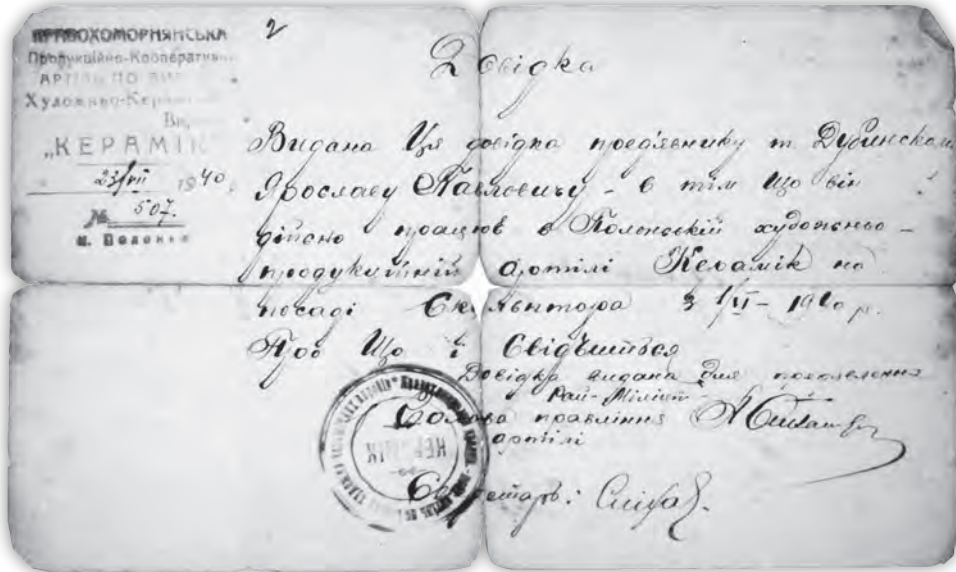 2
ПРАВОХОМОРНЯНСЬКА
Продукційно-Кооперативна
Художньо-
„КЕРАМІК
23/VII 1940
№ 507.
м. Полонне
Довідка
Видана Ця довідка предявнику т. Дубинском
Ярославу Павловичу - в тім що він
дійсно працюв в Полонській художньо-
продукційній артілі Керамік на
посаді Скульптора з 1/VI- 1940 р.
Про Що і Свідчиться
Довідка видана для
Рай-Міліції
Голова правління
артілі
Секретарь:
КЕРАМІК